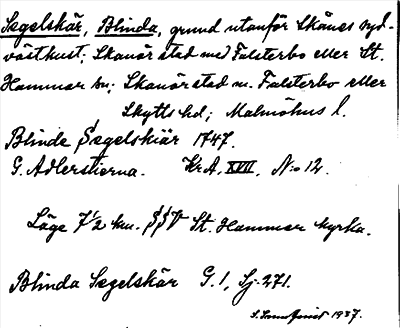 Segelskär, Blinda, grund utanför Skånes syd-
västkust; Skanör stad med Falsterbo eller St.
Hammar sn; Skanör stad m. Falsterbo eller
Skytts hd; Malmöhus l.
Blinde Segelskiär 1747.
G. Adlerstierna. Kr A, XVII, N:o 12.
Läge 7 1/2 km. SSV St. Hammar kyrka.
Blinda Segelskär G. 1, Sj. 271.
1937.